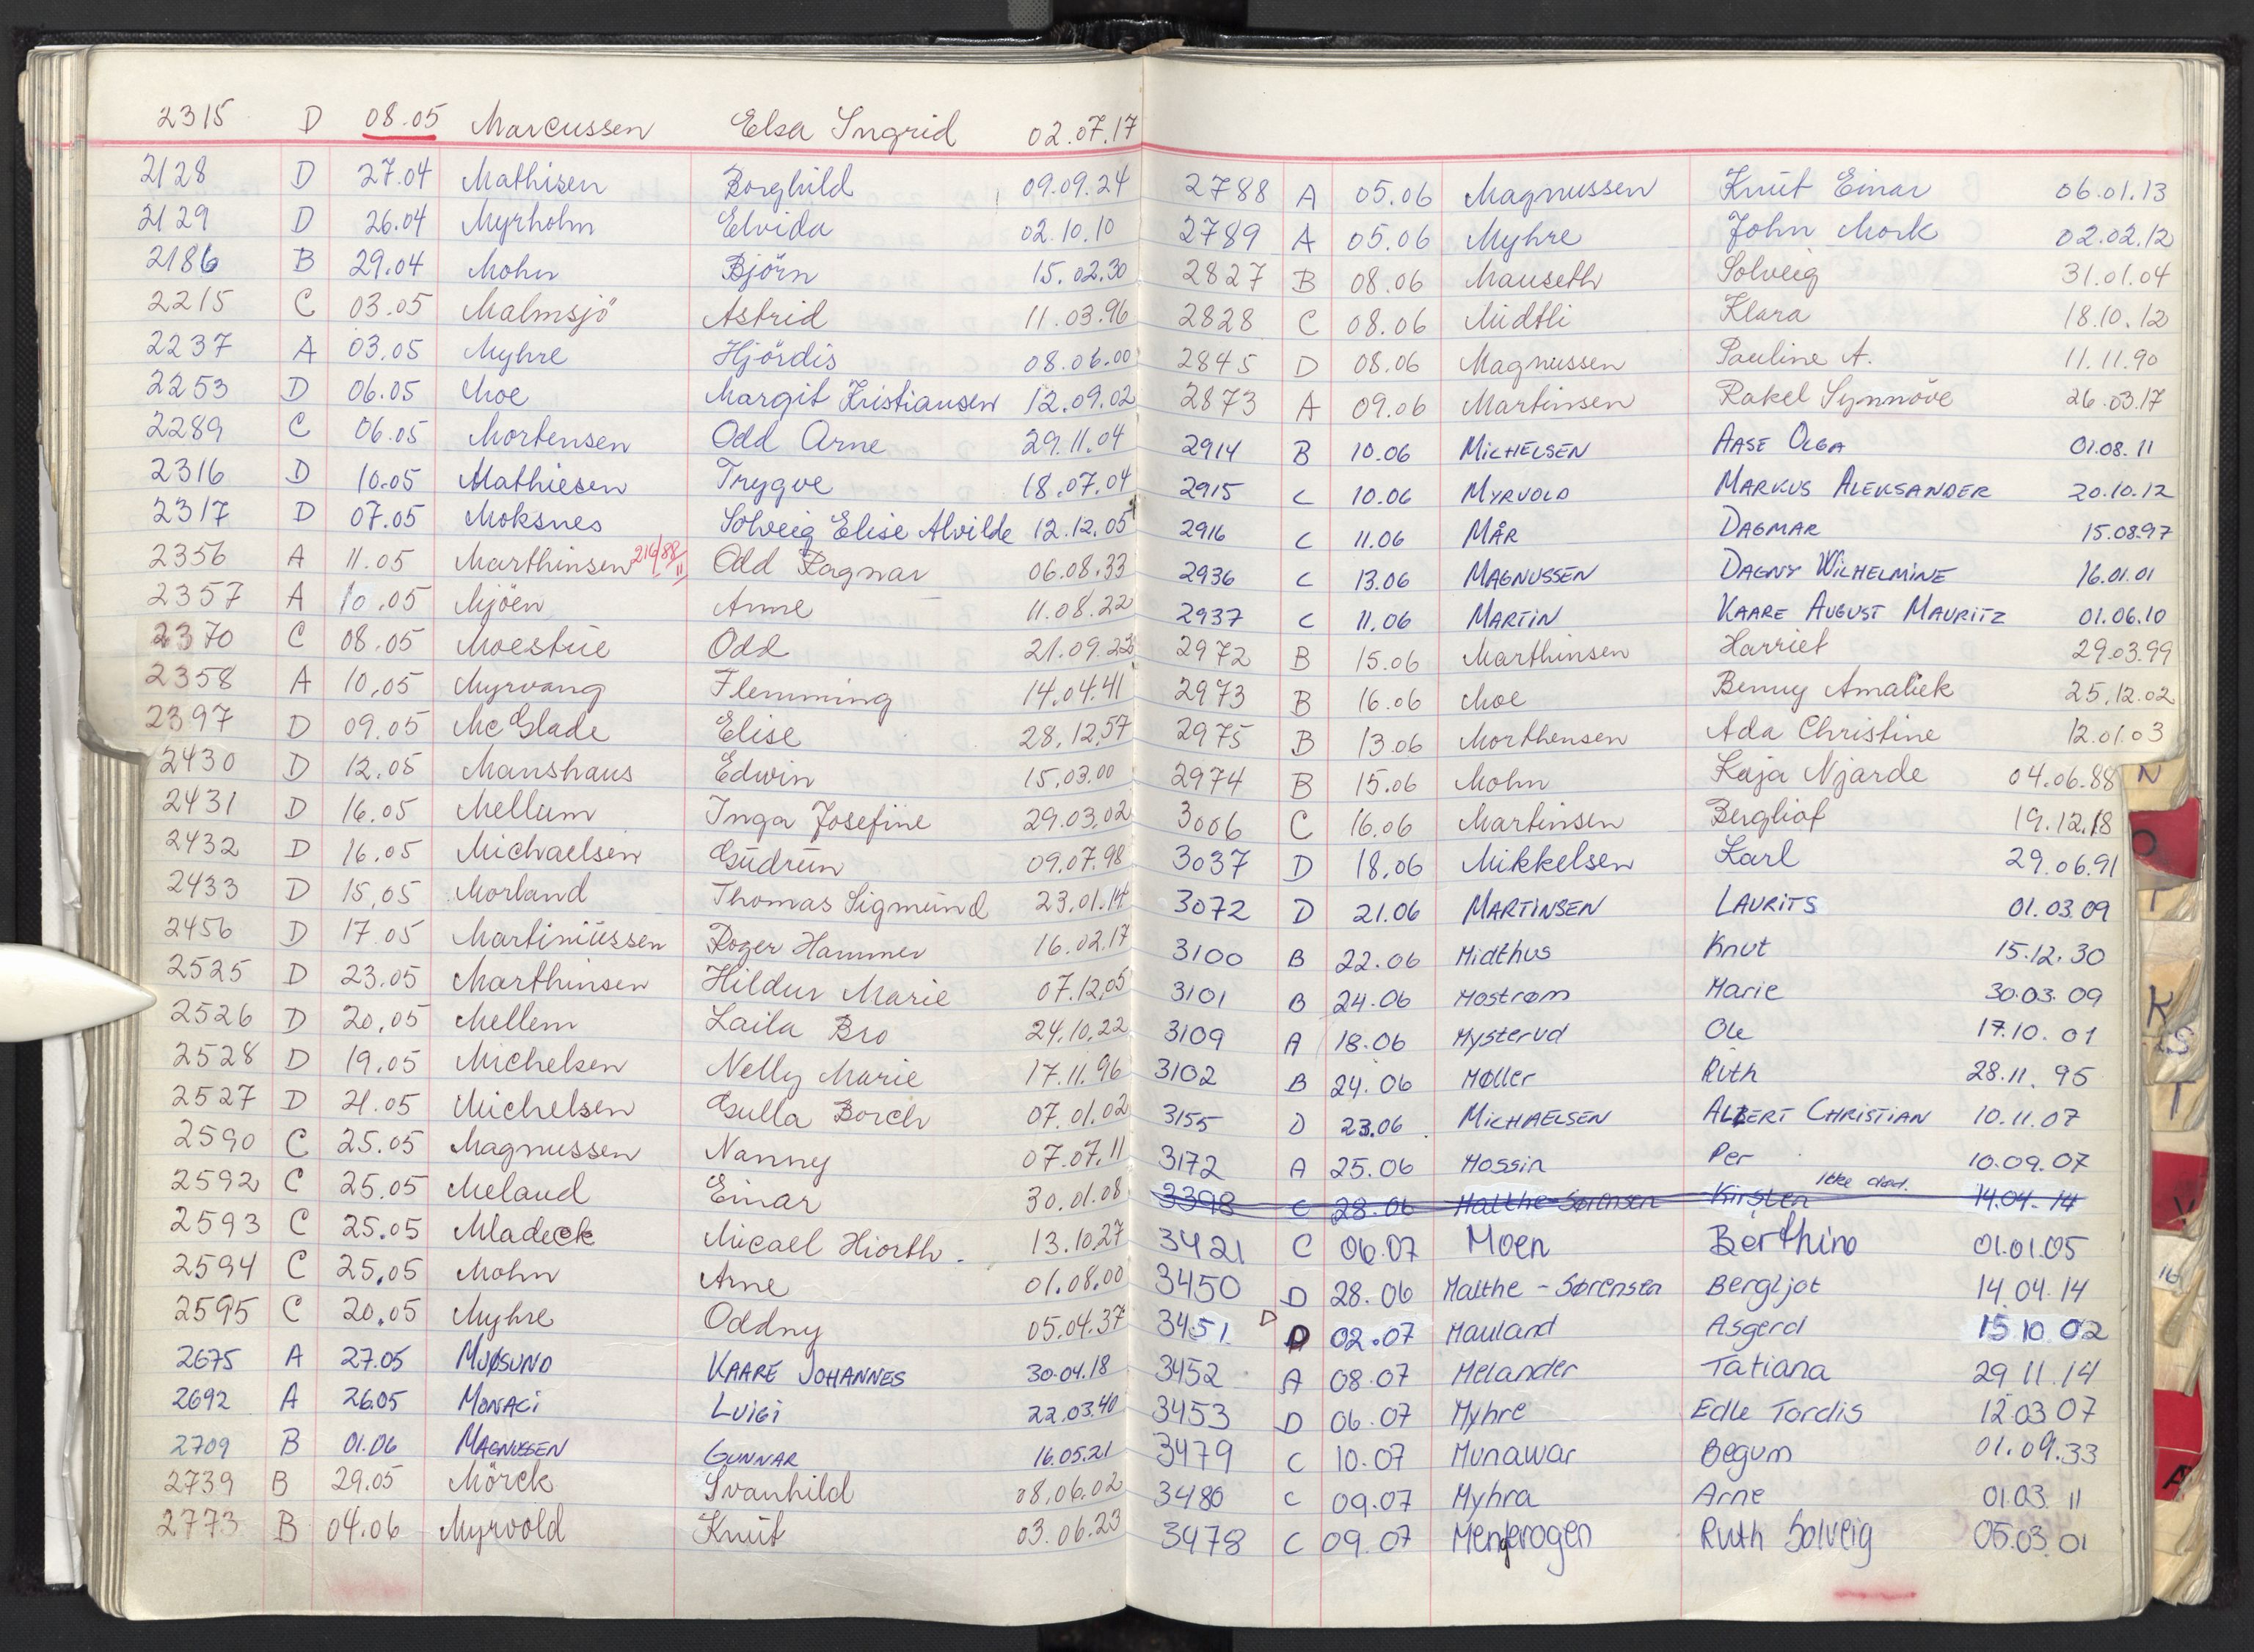 2315 D 08.05 Marcussen Elsa Ingrid 02.07.17
2128 D 27.04 Mathisen Borghild 09.09.24
2129 D 26.04 Myrholm Elvida 02.10.10
2186 B 29.04 Mohn Björn 15.02.30
2215 C 03.05 Malmsjö Astrid 11.03.96
2237 A 03.05 Myhre Hjördis 08.06.00
2253 D 06.05 Moe Margit Kristiansen 12.09.02
2289 C 06.05 Mortensen Odd Arne 29.11.04
2316 D 10.05 Mathiesen Trygve 18.07.04
2317 D 07.05 Moksnes Solveig Elise Alvilde 12.12.05
2356 A 11.05 Marthinsen Odd Ragnar 06.08.33
2357 A 10.05 Mjöen Arne 11.08.22
2370 C 08.05 Moestue Odd 21.09.23
2358 A 10.05 Myrvang Flemming 14.04.41
2397 D 09.05 Mc Glade Elise 28.12.57
2430 D 12.05 Manshaus Edwin 15.03.00
2431 D 16.05 Mellum Inga Josefine 29.03.02
2432 D 16.05 Michaelsen Gudrun 09.07.98
2433 D 15.05 Morland Thomas Sigmund 23.01.14
2456 D 17.05 Martiniussen Roger Hammer 16.02.17
2525 D 23.05 Marthinsen Hildur Marie 07.12.05
2526 D 20.05 Mellem Laila Bro 24.10.22
2528 D 19.05 Michelsen Nelly Marie 17.11.96
2527 D 21.05 Michelsen Gulla Borch 07.01.02
2590 C 25.05 Magnussen Nanny 07.07.11
2592 C 25.05 Meland Einar 30.01.08
2593 C 25.05 Mladeck Micael Hiorth 13.10.27
2594 C 25.05 Mohn Arne 01.08.00
2595 C 20.05 Myhre Oddny 05.04.37
2675 A 27.05 MJØSUND KAARE JOHANNES 30.04.18
2692 A 26.05 MONACI LUIGI 22.03.40
2709 B 01.06 MAGNUSSEN GUNNAR 16.05.21
2739 B 29.05 Mörck Svanhild 08.06.02
2773 B 04.06 Myrvold Knut 03.06.23
2788 A 05.06 Magnussen Knut Einar 06.01.13
2789 A 05.06 Myhre John Mork 02.02.12
2827 B 08.06 Mauseth Solveig 31.01.04
2828 C 08.06 Midtli Klara 18.10.12
2845 D 08.06 Magnussen Pauline A. 11.11.90
2873 A 09.06 Martinsen Rakel Synnöve 26.03.17
2914 B 10.06 MICHELSEN AASE OLGA 01.08.11
2915 C 10.06 MYRVOLD MARKUS ALEKSANDER 20.10.12
2916 C 11.06 MÅR DAGMAR 15.08.97
2936 C 13.06 MAGNUSSEN DAGNY WILHELMINE 16.01.01
2937 C 11.06 MARTIN KAARE AUGUST MAURITZ 01.06.10
2972 B 15.06 Marthinsen Harriet 29.03.99
2973 B 16.06 Moe Benny 25.12.02
2975 B 13.06 Morthensen Ada Christine 12.01.03
2974 B 15.06 Mohn Kaja Njarde 04.06.88
3006 C 16.06 Martinsen Bergliot 19.12.18
3037 D 18.06 Mikkelsen Karl 29.06.91
3072 D 21.06 MARTINSEN LAURITS 01.03.09
3100 B 22.06 Midthus Knut 15.12.30
3101 B 24.06 Mostrøm Marie 30.03.09
3109 A 18.06 Mysterud Ole 17.10.01
3102 B 24.06 Møller Ruth 28.11.95
3155 D 23.06 MICHAELSEN ALBERT CHRISTIAN 10.11.07
3172 A 25.06 Mossin Per 10.09.07
3398 C 28.06 Malthe-Sørensen Kirsten ikke død. 14.04.14
3421 C 06.07 Moen Berthine 01.01.05
3450 D 28.06 Malthe-Sørensen Bergljot 14.04.14
3451 D D 02.07 Mauland Asgerd 15.10.02
3452 A 08.07 Melander Tatiana 29.11.14
3453 D 06.07 Myhre Edle Tordis 12.03.07
3479 C 10.07 Munawar Begum 01.09.33
3480 C 09.07 Myhra Arne 01.03.11
3478 C 09.07 Ruth Solveig 05.03.01
N
O
K
S
T
V
A